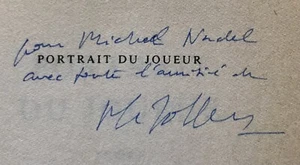 pour Michel Nadel
PORTRAIT DU JOUEUR
avec toute l'amitié de
Ph Sollers